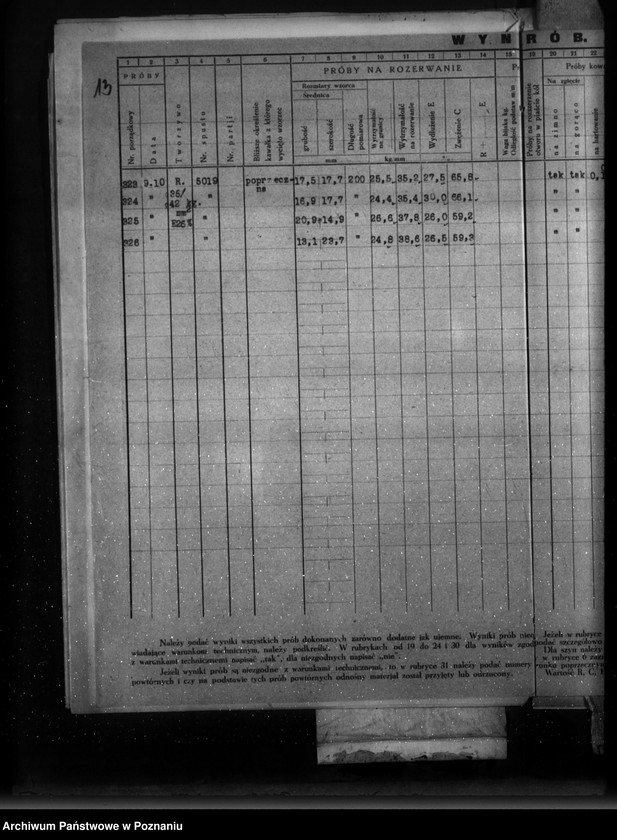 WYNRÓB.
13
1 2 3 4 5 6 7 8 9 10 11 12 13 14 15 19 20 21 22
PRÓBY
PRÓBY NA ROZERWANIE
Próby
Rozmiary wzorca
Średnica
Na zgięcie
Nr. porządkowy
Data
Tworzywo
Nr. spustu
Nr. partji
Bliższe określenie kawałka z którego wycięto wzorzec
grubość
szerokość
Długość pomiarowa
Wytrzymałość na granicy
Wytrzymałość na rozerwanie
Wydłużenie E
Zwężenie C
R + E
Próby na rozszerzenie otworu w piaście kół
na zimno
na gorąco
na hartowanie
mm
kg/mm
323 9.10 R. 5019 poprzeczne 17,5 17,7 200 25,5 35,2 27,5 65,8 tak tak
35/42
324 " " 16,9 17,7 " 24,4 35,4 30,0 66,1 " "
325 " E26% " 20,9 14,9 " 26,6 37,8 26,0 59,2 " "
326 " " 13,1 23,7 " 24,8 38,6 26,5 59,3 " "
Należy podać wyniki wszystkich prób dokonanych zarówno dodatne jak ujemne. Wyniki prób nie Jeżeli w rubryce
wiadające warunkom technicznym, należy podkreślić. W rubrykach od 19 do 24 i 30 dla wyników zgod podać szczegółowo
z warunkami technicznemi napisać „tak", dla niezgodnych napisać „nie". Dla szyn należy
w rubryce 6
Jeżeli wyniki prób są niezgodne z warunkami technicznemi, to w rubryce 31 należy podać numery runku poprzecznym
powtórnych i czy na podstawie tych prób powtórnych odnośny materjał został przyjęty lub odrzucony. Wartość R. C.
Archiwum Państwowe w Poznaniu